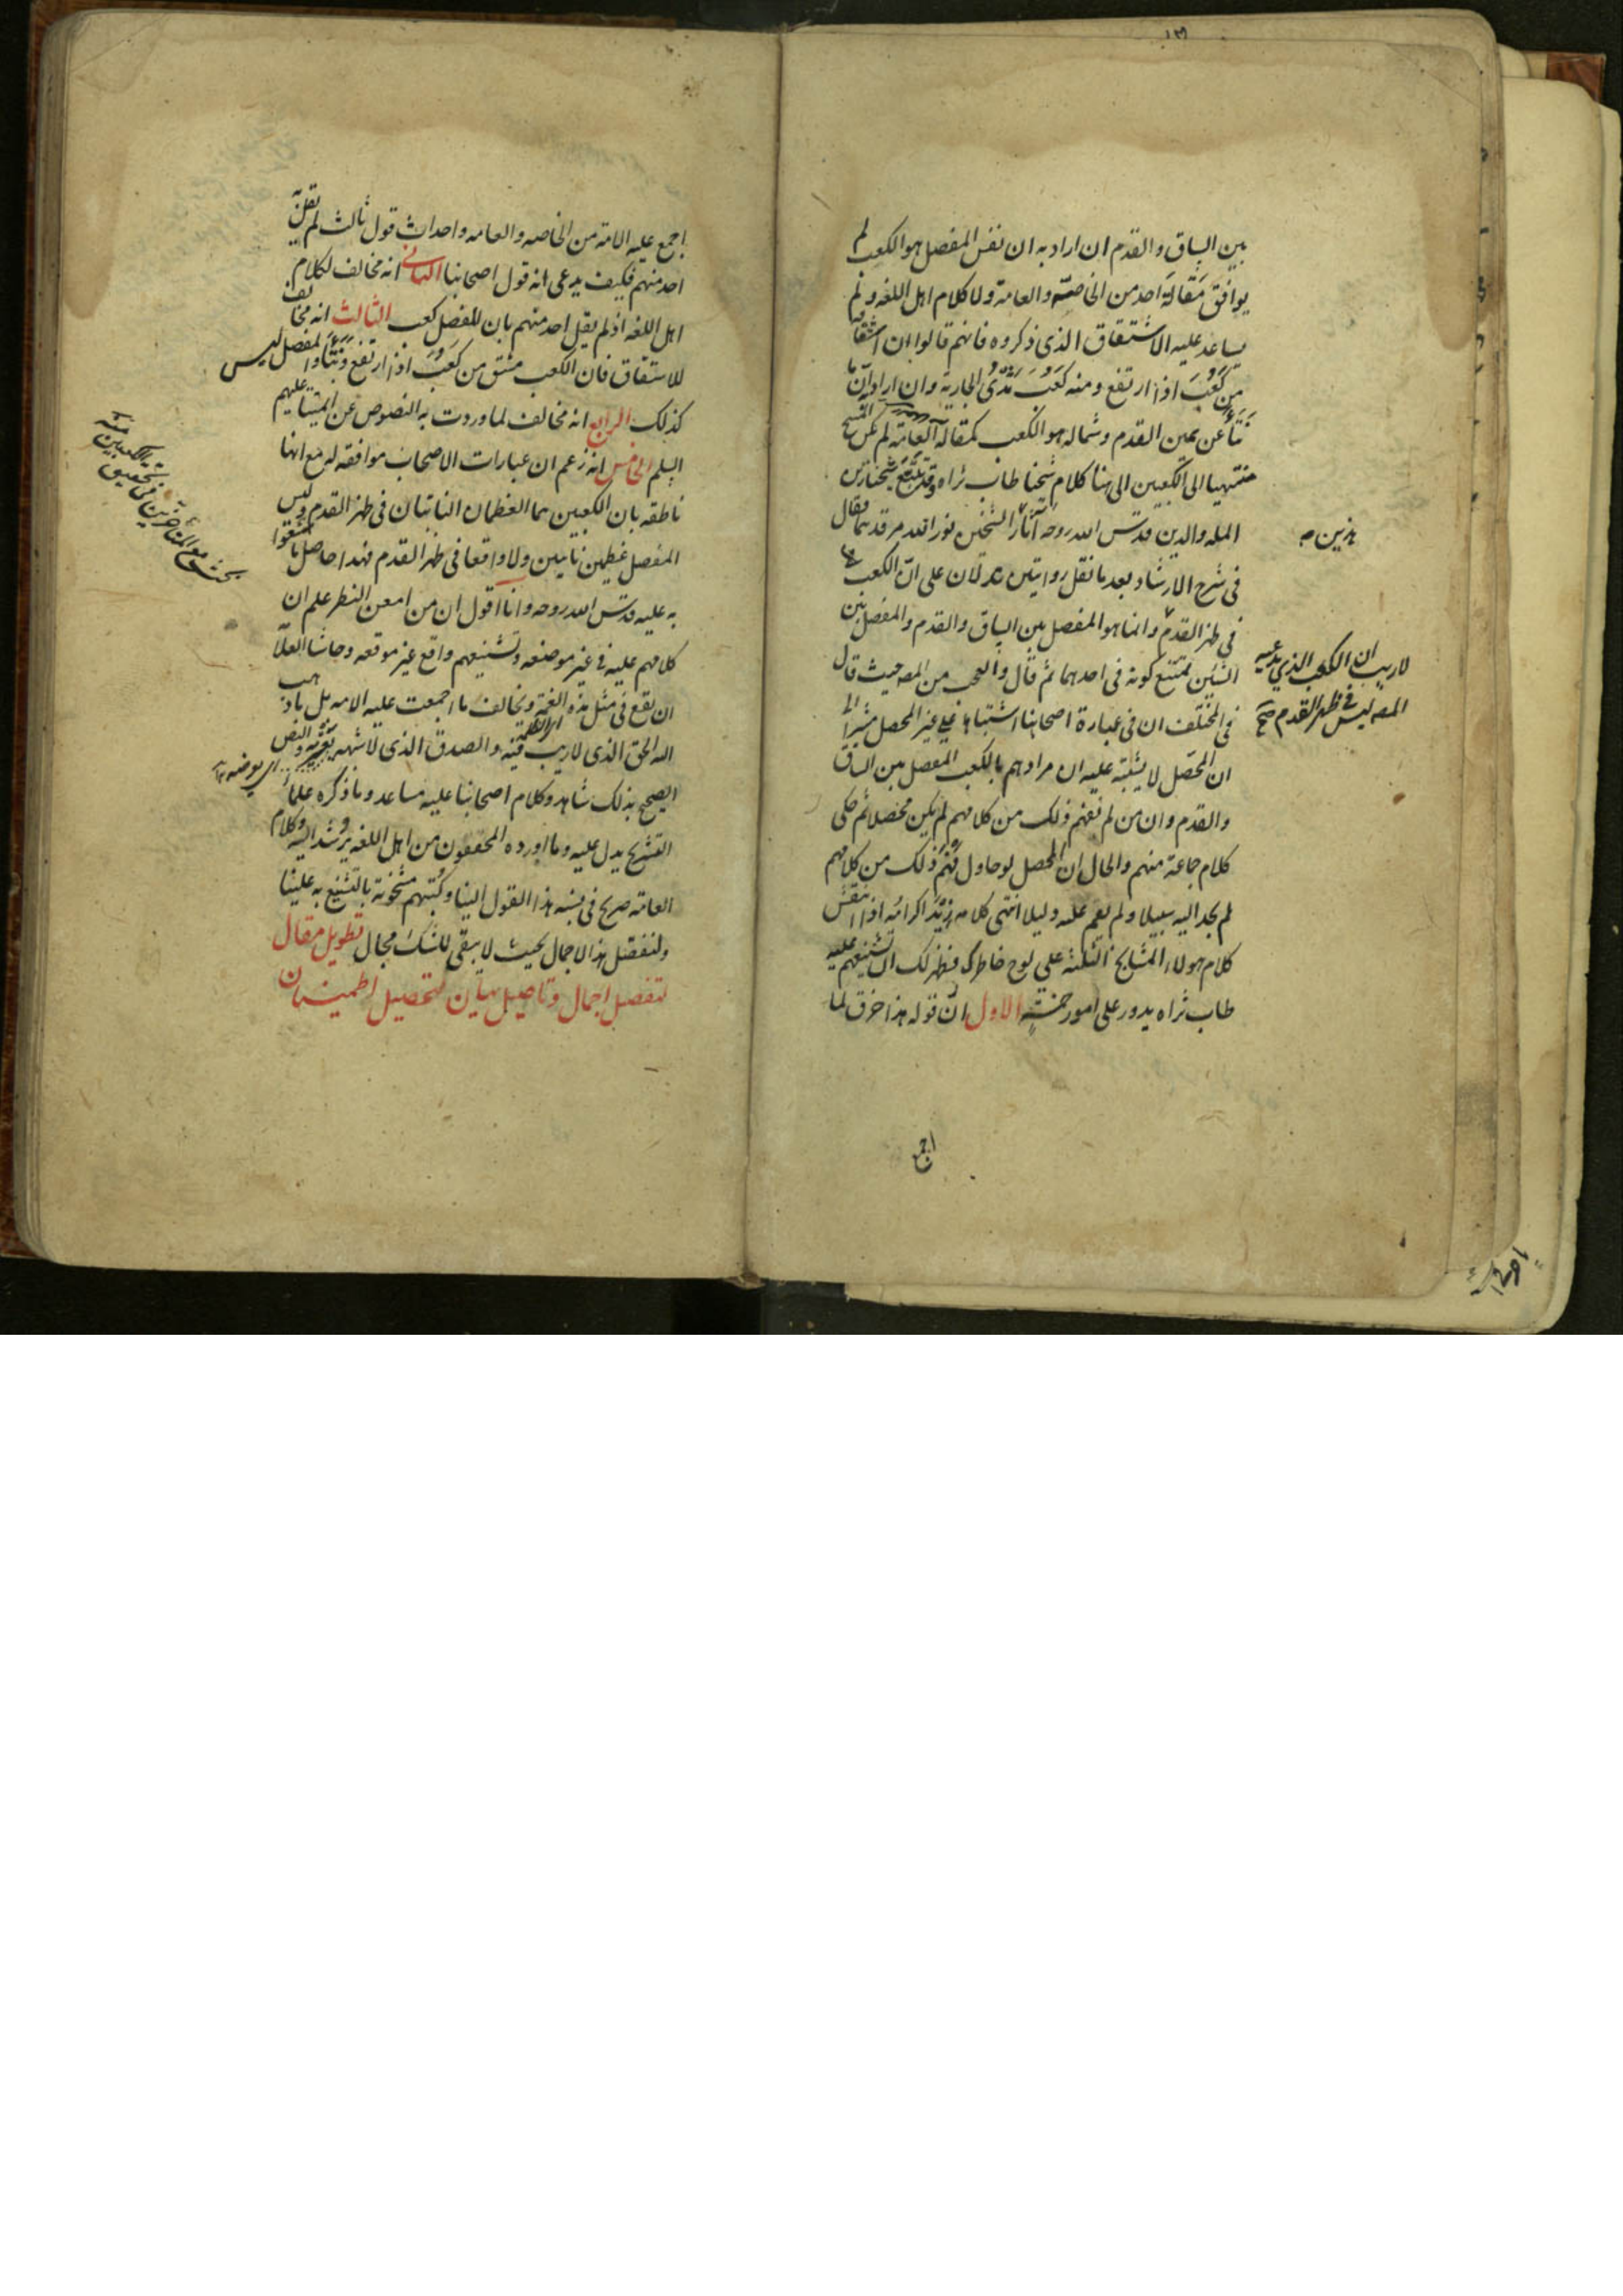 بين الساق والقدم ان اراد به ان نفس المفصل هو الكعب لم
يوافق مقالة احد من الخاصة والعامة ولا كلام اهل اللغه ولم
يساعد عليه الاشتقاق الذى ذكروه فانهم قالوا ان اشتقاقه
من كَعَبَ اذا ارتفع ومنه كَعَبَ ثَدْىُ الجارية وان اراد به ان ما
نتأ عن يمين القدم وشماله هو الكعب كمقالة العامة لم يكن المسح
منتهيا الى الكعبين الى هنا كلام شيخنا طاب ثراه وقد تتبع شيخنا زين
الملة والدين قدس الله روحه آثار الشيخين نور الله مرقدهما فقال
هذين
فى شرح الارشاد بعد ما نقل روايتين تدلان على انّ الكعب
فى ظهر القدم وانما هو المفصل بين الساق والقدم والمفصل بين
لا ريب ان الكعب الذي يدعيه
المص ليس فى ظهر القدم صح
الشيئين يمتنع كونه فى احدهما ثم قال والعجب من المص حيث قال
فى المختلف ان فى عبارة اصحابنا اشتباها على غير المحصل مشيرا الى
ان المحصل لا يشتبه عليه ان مرادهم بالكعب المفصل بين الساق
والقدم وان من لم يفهم ذلك من كلامهم لم يكن محصلا ثم حكى
كلام جماعة منهم والحال ان المحصل لو حاول فَهْمَ ذلك من كلامهم
لم يجد اليه سبيلا ولم يقم عليه دليلا انتهى كلامه زِيْدَ اكرامُه اذا انتقش
كلام هولاء المشايخ الثلثة على لوح خاطرك فيظهر لك ان تشنيعهم عليه
طاب ثراه يدور على امور خمسة الاول ان قوله هذا خرق لما
اجمع
اجمع عليه الامة من الخاصه والعامه واحداث قول ثالث لم يقل به
احد منهم فكيف يدعى انه قول اصحابنا الثانى انه مخالف لكلام
اهل اللغه اذ لم يقل احد منهم بان المفصل كعب الثالث انه مخالف
للاشتقاق فان الكعب مشتق من كَعَبَ اذا ارتفع وَنَتَأَ والمفصل ليس
كذلك الرابع انه مخالف لما وردت به النصوص عن ائمتنا عليهم
السلم الخامس انه زعم ان عبارات الاصحاب موافقه له مع انها
ناطقه بان الكعبين هما العظمان الناتيان فى ظهر القدم وليس
المفصل عظمين ناتيين ولا واقعا فى ظهر القدم فهذا حاصل ما شنعوا
به عليه قدس الله روحه وانا اقول ان من امعن النظر علم ان
كلامهم عليه فى غير موضعه وتشنيعهم واقع غير موقعه وحاشا العلامة
ان يقع فى مثل هذه ويخالف ما اجمعت عليه الامه بل ما ذهب
اليه الحق الذى لا ريب فيه والصدق الذى لا شبهه تعتريه والنص
الصحيح بذلك شاهد وكلام اصحابنا عليه مساعد وما ذكره علماء
التشريح يدل عليه وما اورده المحققون من اهل اللغه يرشد اليه وكلام
العامه صريح فى نسبة هذا القول الينا وكتبهم مشحونة بالتشنيع به علينا
ولنفصل هذا الاجمال بحيث لا يبقى للشك مجال تطويل مقال
لتفصيل اجمال وتاصيل بيان لتحصيل اطمينان
بحث مع المتاخرين فى تحقيق الكعبين